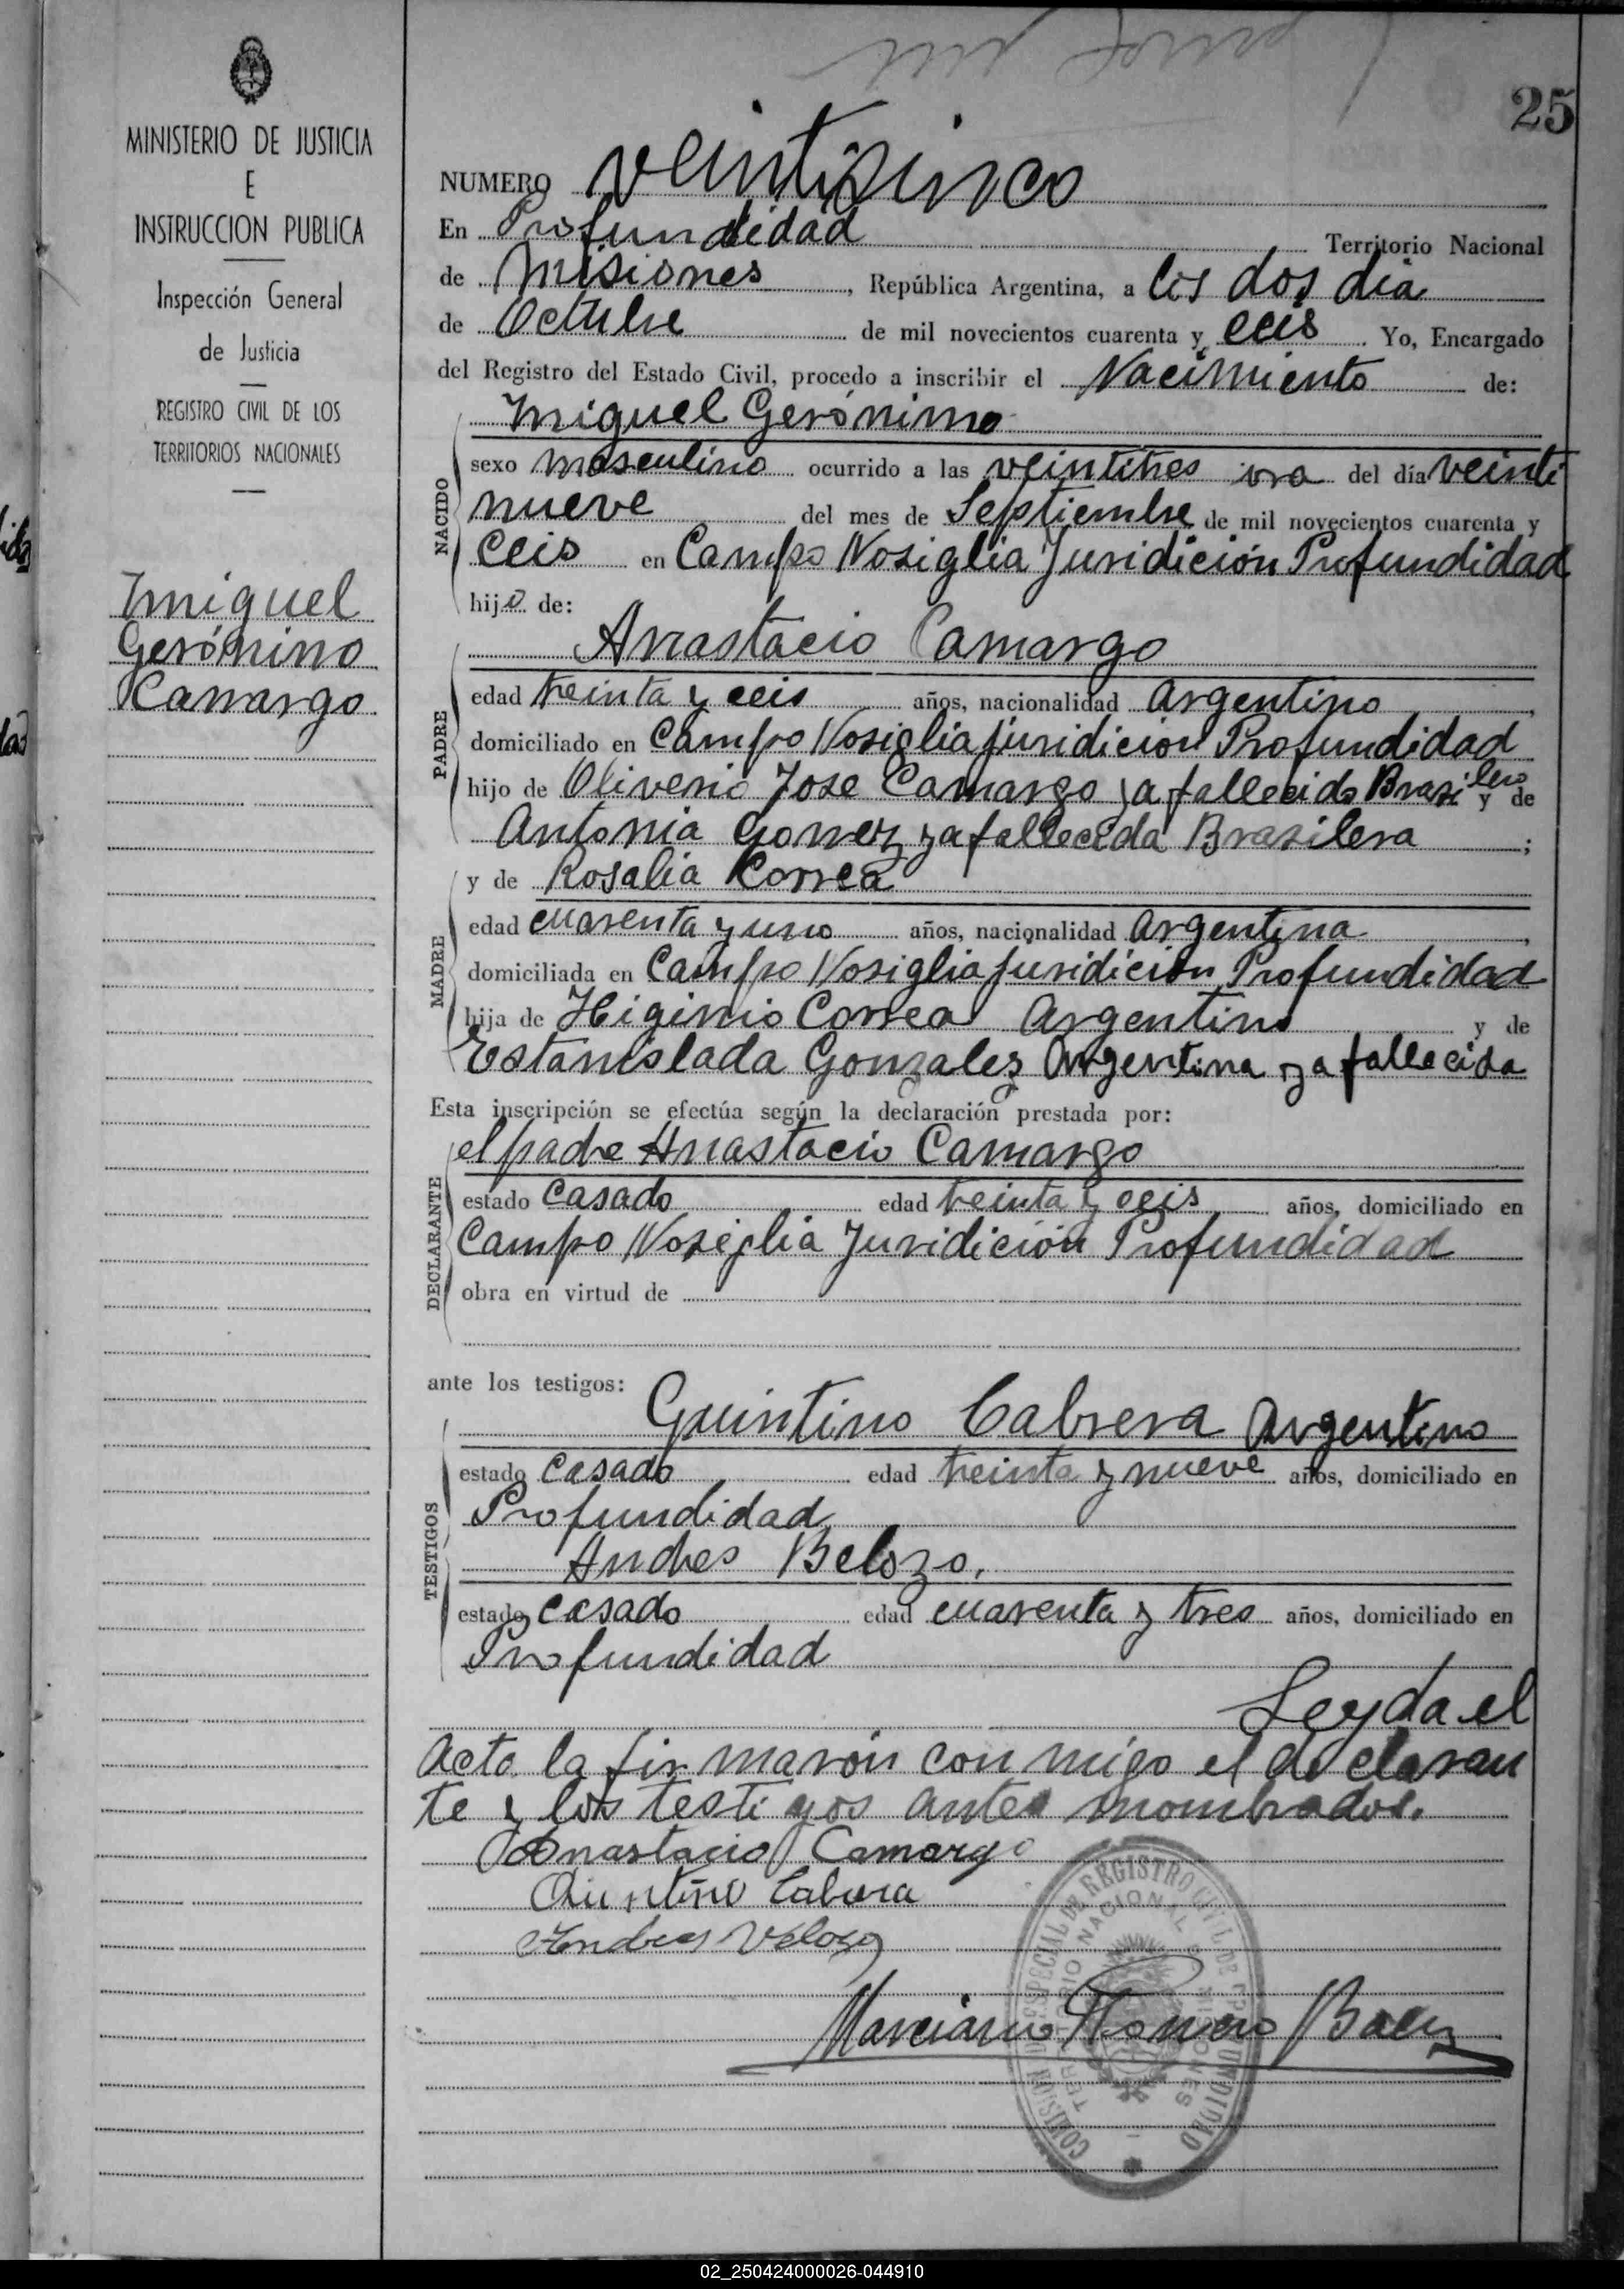 25
MINISTERIO DE JUSTICIA
E
INSTRUCCION PUBLICA
Inspección General
de Justicia
REGISTRO CIVIL DE LOS
TERRITORIOS NACIONALES
Miguel
Gerónimo
Camargo
NUMERO veinticinco
En Profundidad Territorio Nacional
de Misiones, República Argentina, a los dos dia
de Octubre de mil novecientos cuarenta y ceis Yo, Encargado
del Registro del Estado Civil, procedo a inscribir el Nacimiento de:
NACIDO
Miguel Gerónimo
sexo masculino ocurrido a las veintitres ora del día veinti
nueve del mes de Septiembre de mil novecientos cuarenta y
ceis en Campo Nosiglia Juridición Profundidad
hijo de:
PADRE
Anastacio Camargo
edad treinta y ceis años, nacionalidad argentino,
domiciliado en Campo Nosiglia juridición Profundidad
hijo de Oliverio Jose Camargo ya fallecido Brasilero y de
Antonia Gomez ya fallecida Brasilera;
MADRE
y de Rosalia Correa
edad cuarenta y uno años, nacionalidad argentina,
domiciliada en Campo Nosiglia juridición Profundidad
hija de Higinio Correa Argentino y de
Estanislada Gonzalez Argentina ya fallecida
Esta inscripción se efectúa según la declaración prestada por:
DECLARANTE
el padre Anastacio Camargo
estado casado edad treinta y ceis años, domiciliado en
Campo Nosiglia Juridición Profundidad
obra en virtud de
ante los testigos:
TESTIGOS
Quintino Cabrera Argentino
estado casado edad treinta y nueve años, domiciliado en
Profundidad
Andres Belozo.
estado casado edad cuarenta y tres años, domiciliado en
Profundidad
Leyda el
acta la firmaron con migo el declaran
te y los testigos antes nombrados.
Anastacio Camargo
Quintino Cabrera
Andres Velozo
Marciano Romero Baez
COMISION ESPECIAL DE REGISTRO CIVIL DE PROFUNDIDAD
TERRITORIO NACIONAL DE MISIONES
02_250424000026-044910